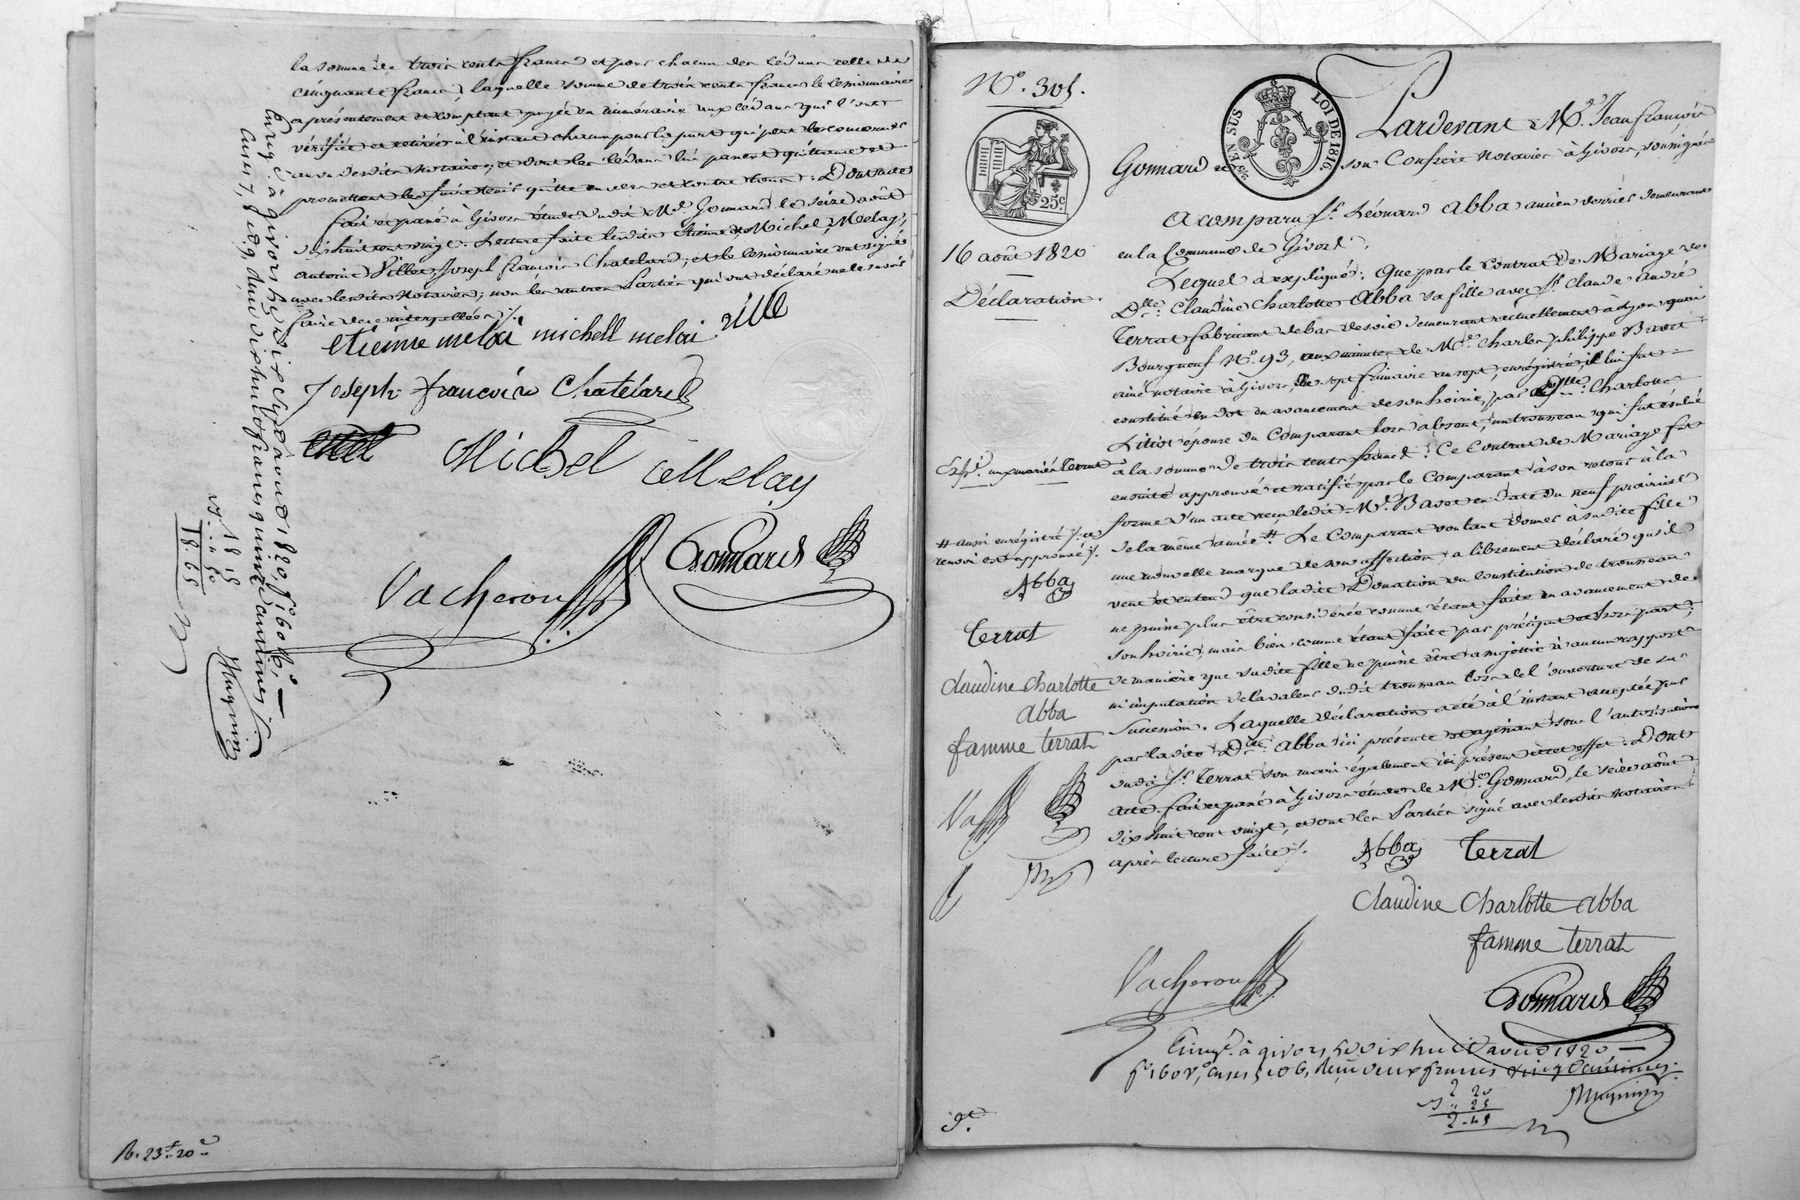 la somme de trois cents francs et pour chacun des cédans celle de
cinquante francs, laquelle somme de trois cents francs le cessionnaire
a présentement et comptant payée en numéraire aux cédans qui l'ont
vérifiée et retirée à l'instant chacun pour la part qui peut les concerner
au vu desdits Notaires; et dont les cédans lui passent quittance et
promettent le faire tenir quitte envers et contre tous. Dont acte
fait et passé à Givors étude dudit Me. Gonnard le seize août
dix huit cent vingt. Lecture faite lesdits Etienne & Michel Melay,
antoine Villes, Joseph françois Chatelard, et le cessionnaire ont signé
avec lesdits Notaires; non les autres Parties qui ont déclaré ne le savoir
faire de ce interpellées ./.
etienne melai michell melai ville
Joseph françois Chatelard
Michel Melay
Vacheron
Gonnard
Enregé. à givors le dix huit août 1820, fo. 160 Vo.
18..65
R. 23f.20c
No. 305.
25c
EN SUS
LOI DE 1816
16 août 1820
Déclaration.
Pardevant Me. Jean françois
Gonnard et son Confrère Notaires à Givors, soussignés
a comparu Sr. Léonard Abba ancien verrier demeurant
en la Commune de Givors.
Lequel a expliqué: Que par le Contrat de Mariage de
Dlle. Claudine Charlotte Abba sa fille avec Sr. Claude André
Terrat fabricant de bas de soie demeurant actuellement à Lyon quai
Bourgneuf No. 93, aux minutes de Me. Charles philippe Bavet
ainé notaire à Givors, du sept frimaire an sept, enregistré, il lui fut
constitué en dot en avancement de son hoirie, par Dlle. Charlotte
Litiot épouse du Comparant lors absent, un trousseau qui fut évalué
à la somme de trois cents francs. Ce Contrat de Mariage fut
ensuite approuvé et ratifié par le Comparant à son retour à la
forme d'un acte reçu ledit Me. Bavet en date du neuf prairial
de la même année #. Le Comparant voulant donner à sadite fille
une nouvelle marque de son affection, a librement déclaré qu'il
veut et entend que ladite Donation ou constitution de trousseau
ne puisse plus être considérée comme étant faite en avancement de
son hoirie, mais bien comme étant faite par préciput et hors part;
de manière que sadite fille ne puisse être assujettie à aucun rapport
ni imputation de la valeur dudit trousseau lors de l'ouverture de sa
Succession. Laquelle déclaration a été à l'instant acceptée par
par ladite Dlle. Abba ici présente et agissant sous l'autorisation
dudit Sr. Terrat son mari également ici présent à cet effet. Dont
acte. fait et passé à Givors étude de Me. Gonnard, le seize août
dix huit cent vingt, et ont les Parties signé avec lesdits Notaires
après lecture faite ./.
# aussi enregistré ./. ce
renvoi est approuvé ./.
Abba
Terrat
Claudine Charlotte
abba
famme terrat
Abba Terrat
Claudine Charlotte abba
famme terrat
Vacheron
Gonnard
Enregé. à givors le dix huit août 1820
fo. 160 Vo, cases 5 et 6, reçu deux francs vingt centimes.
2 20
" 25
2..45